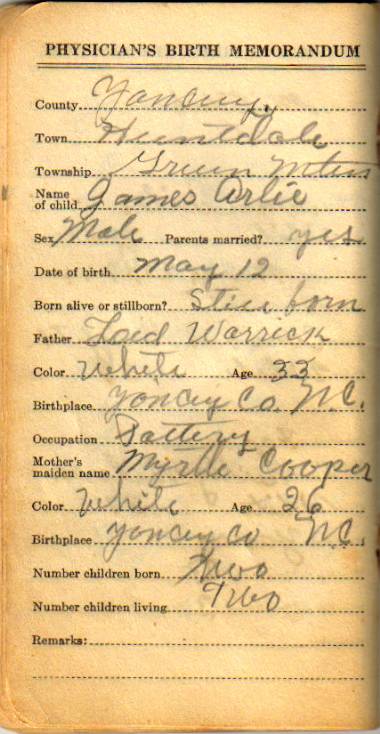 PHYSICIAN'S BIRTH MEMORANDUM
County Yancey,
Town Huntdale
Township Green Mtn
Name of child James Arlie
Sex Male Parents married? yes
Date of birth May 12
Born alive or stillborn? Still born
Father Loid Warrick
Color White Age 33
Birthplace Yancey Co. N.C.
Occupation
Mother's maiden name Myrtle Cooper
Color White Age 26
Birthplace Yancey Co N.C.
Number children born Two
Number children living Two
Remarks: